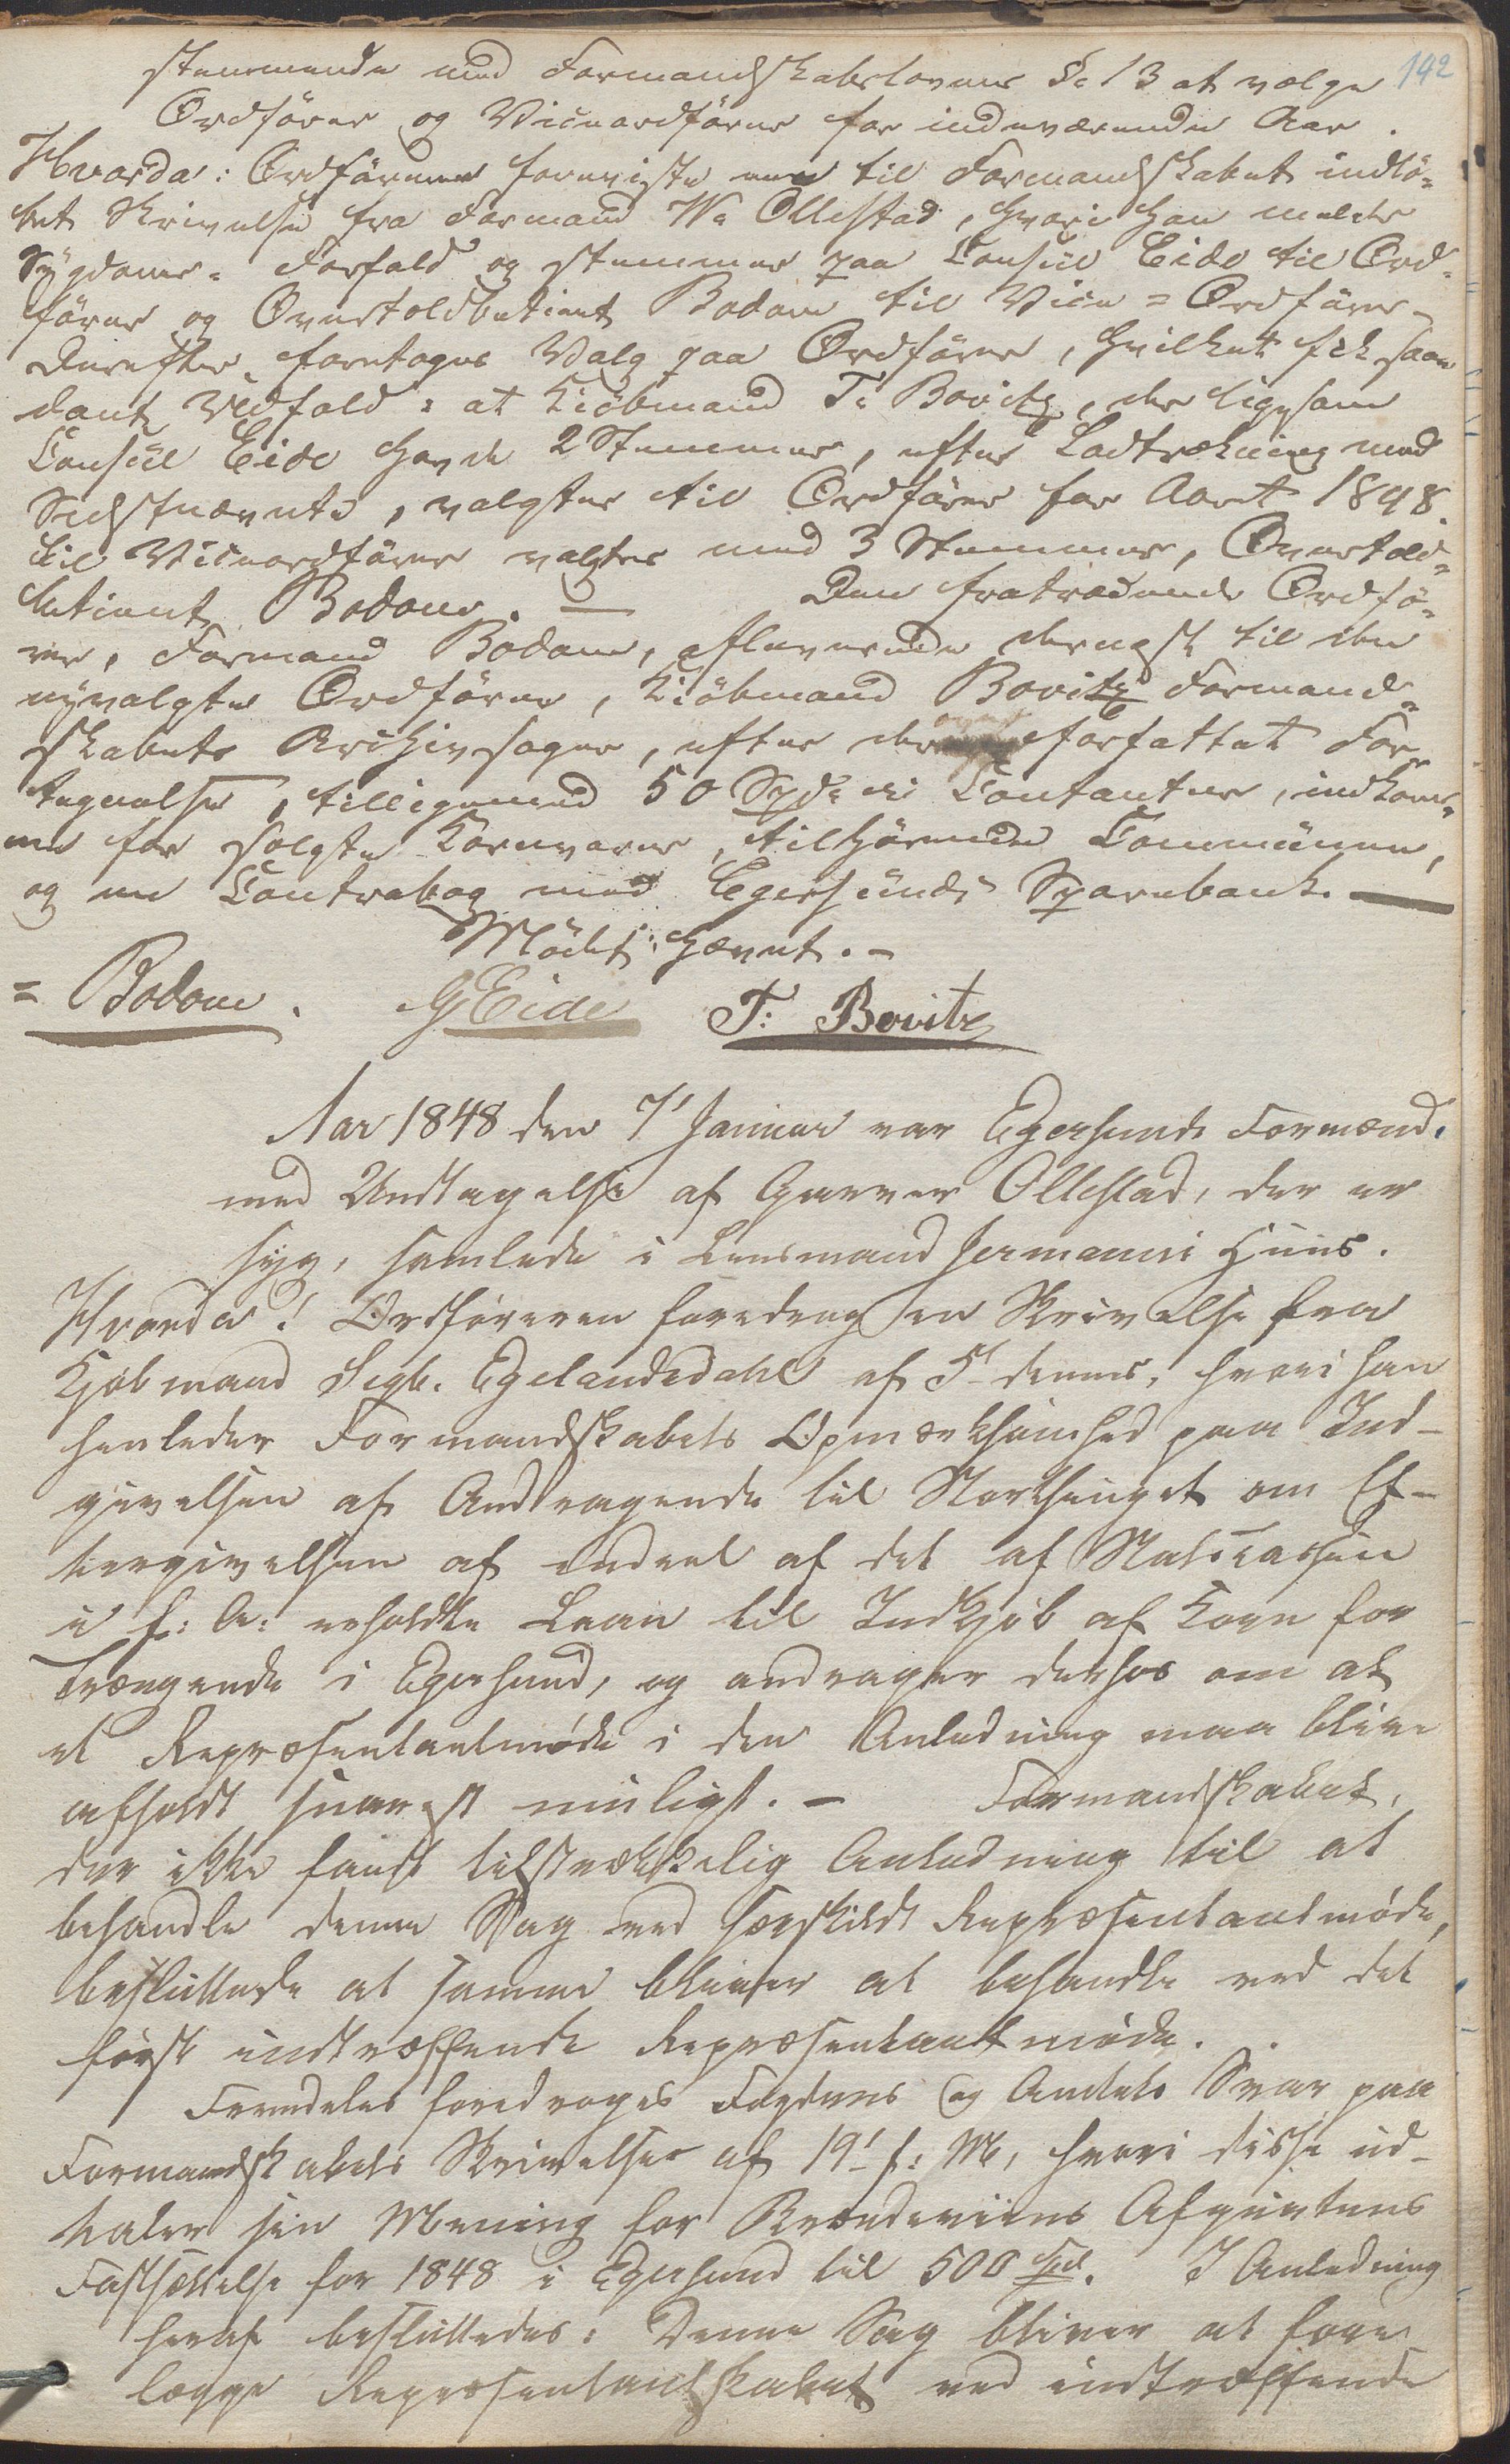 142
stemmende med Formandskabslovens §: 13 at vælge
Ordförer og Viceordförer for indeværende Aar.
Hvorda: Ordföreren foreviste en til Formandskabet indlö-
bet Skrivelse fra Formand W: Ollestad, hvori han melder
Sygdoms-Forfald og stemmer paa Consul Eide til Ord-
förer og Overtoldbetient Bodom til Vice-Ordförer.
Derefter foretoges Valg paa Ordförer, hvilket fik saa-
dant Udfald: at Kiöbmand T: Bovitz, der ligesom
Consul Eide havde 2 Stemmer, efter Lodtrækning med
Sidstnævnte, valgtes til Ordförer for Aaret 1848.
Til Viceordförer valgtes med 3 Stemmer, Overtold-
betient Bodom. — Den fratrædende Ordfö-
rer, Formand Bodom, afleverede dernæst til den
nyvalgte Ordförer, Kiöbmand Bovitz Formand-
skabets Archivsager, efter derover forfattet For-
tegnelse, tilligemed 50 Spd: i Contanter, indkom-
ne for solgte Kornvarer, tilhörende Communen,
og en Contrabog med Egersunds Sparebank. —
Mödet hævet. -
= Bodom. GEide T: Bovitz
Aar 1848 den 7' Januar var Egersunds Formænd.
med Undtagelse af Garver Ollestad, der er
syg, samlede i Lensmand Jermanns Huus.
Hvorda! Ordføreren foredrog en Skrivelse fra
Kjøbmand Sigb. Egelandsdahl af 5' dennes, hvori han
henleder Formandskabets Opmærksomhed paa Ind-
givelsen af Andragende til Storthinget om Ef-
tergivelsen af endeel af det af Statscassen
i f: A: erholdte Laan til Indkjøb af Korn for
Trængende i Egersund, og andrager derhos om at
et Repræsentantmøde i den Anledning maa blive
afholdt snarest muligt. - Formandskabet,
der ikke fandt tilstrækkelig Anledning til at
behandle denne Sag ved særskildt Repræsentantmøde,
besluttede at samme bliver at behandle ved det
først indtræffende Repræsentantmøde.
Fremdeles foredroges Fogdens og Amtets Svar paa
Formandskabets Skrivelser af 19' f: M, hvori disse ud-
taler sin Mening for Brændeviins Afgivtens
Fastsættelse for 1848 i Egersund til 500 Spd. I Anledning
heraf besluttedes: Denne Sag bliver at fore-
lægge Repræsentantskabet ved indtræffende